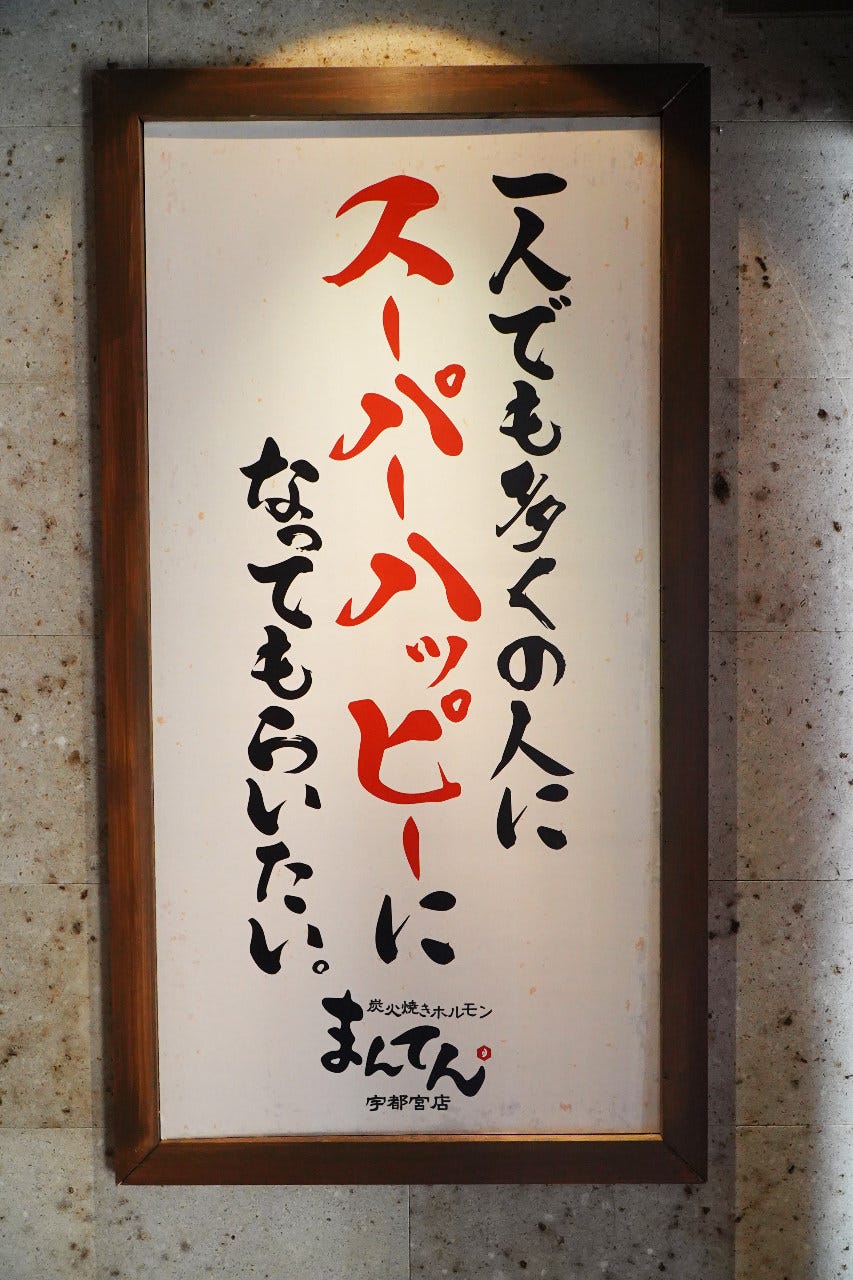 一人でも多くの人に
スーパーハッピーに
なってもらいたい。
炭火焼きホルモン
まんてん
宇都宮店